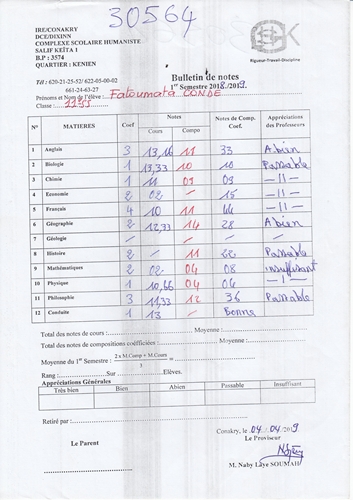 30564
IRE/CONAKRY
DCE/DIXINN
COMPLEXE SCOLAIRE HUMANISTE
SALIF KEÏTA 1
B.P : 3574
QUARTIER : KENIEN
Rigueur-Travail-Discipline
Tél : 620-21-25-52/ 622-05-00-02
661-24-63-27
Bulletin de notes
1er Semestre 2018/2019
Prénoms et Nom de l'élève : Fatoumata CONDE
Classe : 11
N° MATIERES Coef Notes Notes de Comp. Coef. Appréciations des Professeurs
Cours Compo
1 Anglais 3 13,16 11 33 A.bien
2 Biologie 1 13,33 10 10 Passable
3 Chimie 1 11 09 09 -//-
4 Economie 2 02 - 15 -//-
5 Français 4 10 11 44 -//-
6 Géographie 2 12,33 14 28 A bien
7 Géologie
8 Histoire 2 11 22 Passable
9 Mathématiques 2 02 04 08 insuffisant
10 Physique 1 10,66 04 04
11 Philosophie 3 11,33 12 36 Passable
12 Conduite 1 13 Bonne
Total des notes de cours : Moyenne :
Total des notes de compositions coéfficiées : Moyenne :
Moyenne du 1er Semestre : 2 x M.Comp + M.Cours =
3
Rang : Sur Elèves.
Appréciations Générales
Très bien Bien Abien Passable Insuffisant
Retiré par :
Conakry, le 04-04-2019
Le Parent Le Proviseur
M. Naby Laye SOUMAH